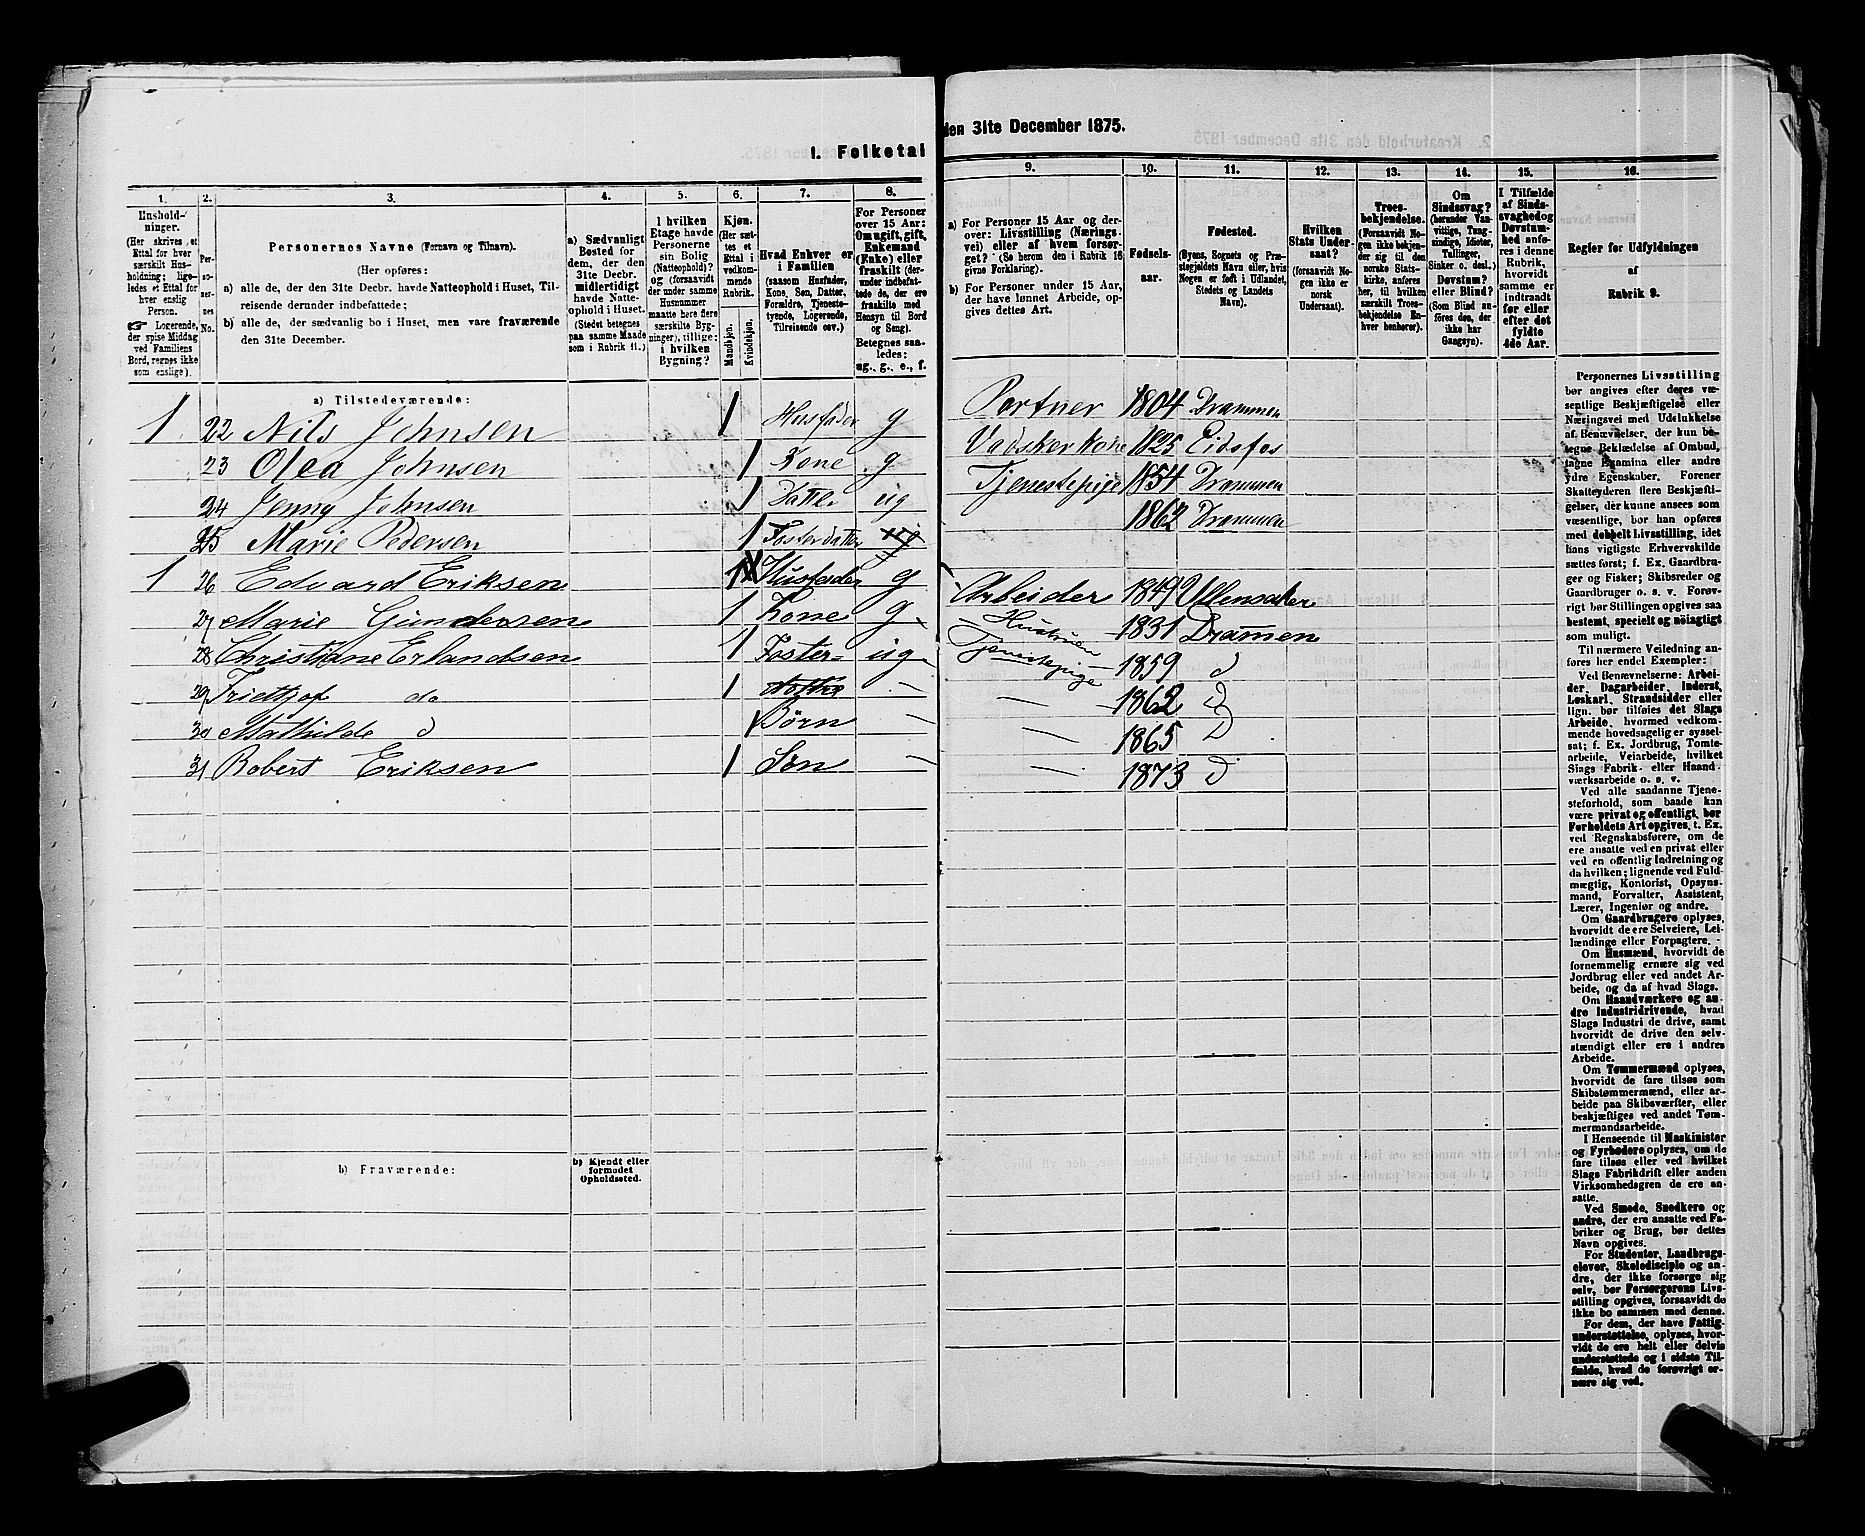 den 31te December 1875.
1. Folketal
1. 2. 3. 4. 5. 6. 7. 8.
9. 10. 11. 12. 13. 14. 15. 16.
Hushold-
ninger.
(Her skrives et
Ettal for hver
særskilt Hus-
holdning; lige-
ledes et Ettal for
hver enslig
Person.
☛ Logerende,
der spise Middag
ved Familiens
Bord, regnes ikke
som enslige).
Per-
so-
ner-
nes
No.
Personernes Navne (Fornavn og Tilnavn).
(Her opføres:
a) alle de, der den 31te Decbr. havde Natteophold i Huset, Til-
reisende derunder indbefattede;
b) alle de, der sædvanlig bo i Huset, men vare fraværende
den 31te December.
a) Sædvanligt
Bosted for
dem, der den
31te Decbr.
midlertidigt
havde Natte-
ophold i Huset.
(Stedet betegnes
paa samme Maade
som i Rubrik 11.)
I hvilken
Etage havde
Personerne
sin Bolig
(Natteophold)?
og (forsaavidt
der under samme
Husnummer
maatte høre flere
særskilte Byg-
ninger), tillige:
i hvilken
Bygning?
Kjøn.
(Her sæt-
tes et
Ettal i
vedkom-
mende
Rubrik.
Mandkjøn.
Kvindekjøn.
Hvad Enhver er
i Familien
(saasom Husfader,
Kone, Søn, Datter,
Forældre, Tjeneste-
tyende, Logerende,
Tilreisende osv.)
For Personer
over 15 Aar:
Om ugift, gift,
Enkemand
(Enke) eller
fraskilt (der-
under indbefat-
tede de, der ere
fraskilte med
Hensyn til Bord
og Seng).
Betegnes saa-
ledes:
ug., g., e., f.
a) For Personer 15 Aar og der-
over: Livsstilling (Nærings-
vei) eller af hvem forsør-
get? (Se herom den i Rubrik 16
givne Forklaring).
b) For Personer under 15 Aar,
der have lønnet Arbeide, op-
gives dettes Art.
Fødsels-
aar.
Fødested.
(Byens, Sognets og Præ-
stegjeldets Navn eller, hvis
Nogen er født i Udlandet,
Stedets og Landets
Navn).
Hvilken
Stats Under-
saat?
(forsaavidt No-
gen ikke er
norsk
Undersaat).
Troes-
bekjendelse.
(Forsaavidt No-
gen ikke bekjen-
der sig til den
norske Stats-
kirke, anføres
her, til hvilken
særskilt Troes-
bekjendelse En-
hver henhører).
Om
Sindssvag?
(herunder Van-
vittige, Tung-
sindige, Idioter,
Tullinger,
Sinker o. desl.)
Døvstum?
eller Blind?
(Som Blind an-
føres den, der
ikke har
Gangsyn).
I Tilfælde
af Sinds-
svaghed og
Døvstum-
hed anfø-
res i denne
Rubrik,
hvorvidt
samme er
indtraadt
før eller
efter det
fyldte
4de Aar.
Regler for Udfyldningen
af
Rubrik 9.
a) Tilstedeværende:
1 22 Nils Johnsen 1 Husfader g Portner 1804 Drammen
23 Olea Johnsen 1 Kone g Vadskerkone 1825 Eidsfos
24 Jenny Johnsen 1 Datter ug Tjenestepige 1854 Drammen
25 Marie Pedersen 1 Fosterdatter ug 1862 Drammen
1 26 Edvard Eriksen 1 Husfader g Arbeider 1849 Ullensaker
27 Marie Gundersen 1 Kone g Hustruen 1831 Dramen
28 Christiane Erlandsen 1 Foster- ug Tjenestepige 1859 d
29 Friethof do 1 — — 1862 D
30 Mathilde d 1 Børn — — 1865 D
31 Robert Eriksen 1 Søn — — 1873 d
b) Fraværende:
b) Kjendt eller
formodet
Opholdssted.
Personernes Livsstilling
bør angives efter deres væ-
sentlige Beskjæftigelse eller
Næringsvei med Udelukkelse
af Benævnelser, der kun be-
tegne Beklædelse af Ombud,
tagne Examina eller andre
ydre Egenskaber. Forener
Skatteyderen flere Beskjæfti-
gelser, der kunne ansees som
væsentlige, bør han opføres
med dobbelt Livsstilling, idet
hans vigtigste Erhvervskilde
sættes først; f. Ex. Gaardbru-
ger og Fisker; Skibsreder og
Gaardbruger o. s. v. Forøv-
rigt bør Stillingen opgives saa
bestemt, specielt og nøiagtigt
som muligt.
Til nærmere Veiledning an-
føres her endel Exempler:
Ved Benævnelserne: Arbei-
der, Dagarbeider, Inderst,
Løskarl, Strandsidder eller
lign. bør tilføies det Slags
Arbeide, hvormed vedkom-
mende hovedsagelig er syssel-
sat; f. Ex. Jordbrug, Tomte-
arbeide, Veiarbeide, hvilket
Slags Fabrik- eller Haand-
værksarbeide o. s. v.
Ved alle saadanne Tjene-
steforhold, som baade kan
være privat og offentligt, bør
Forholdets Art opgives, t. Ex.
ved Regnskabsførere, om de
ere ansatte ved en privat eller
ved en offentlig Indretning og
da hvilken; lignende ved Fuld-
mægtig, Kontorist, Opsyns-
mand, Forvalter, Assistent,
Lærer, Ingeniør og andre.
Om Gaardbrugere oplyses,
hvorvidt de ere Selveiere, Lei-
lændinge eller Forpagtere.
Om Husmænd, hvorvidt de
fornemmelig ernære sig ved
Jordbrug eller ved andet Ar-
beide, og da af hvad Slags.
Om Haandværkere og an-
dre Industridrivende, hvad
Slags Industri de drive, samt
hvorvidt de drive den selv-
stændigt eller ere i andres
Arbeide.
Om Tømmermænd oplyses,
hvorvidt de fare tilsøs som
Skibstømmermænd, eller ar-
beide paa Skibsværfter, eller
beskjæftiges ved andet Tøm-
mermandsarbeide.
I Henseende til Maskinister
og Fyrbødere oplyses, om de
fare tilsøs eller ved hvilket
Slags Fabrikdrift eller anden
Virksomhedsgren de ere an-
satte.
Ved Smede, Snedkere og
andre, der ere ansatte ved Fa-
briker og Brug, bør dettes
Navn opgives.
For Studenter, Landbrugs-
elever, Skoledisciple og an-
dre, der ikke forsørge sig
selv, bør Forsørgerens Livs-
stilling opgives, forsaavidt de
ikke bo sammen med denne.
For dem, der have Fattig-
understøttelse, oplyses, hvor-
vidt de ere helt eller delvis
understøttede og i sidste Til-
fælde, hvad de forøvrigt er-
nære sig ved.